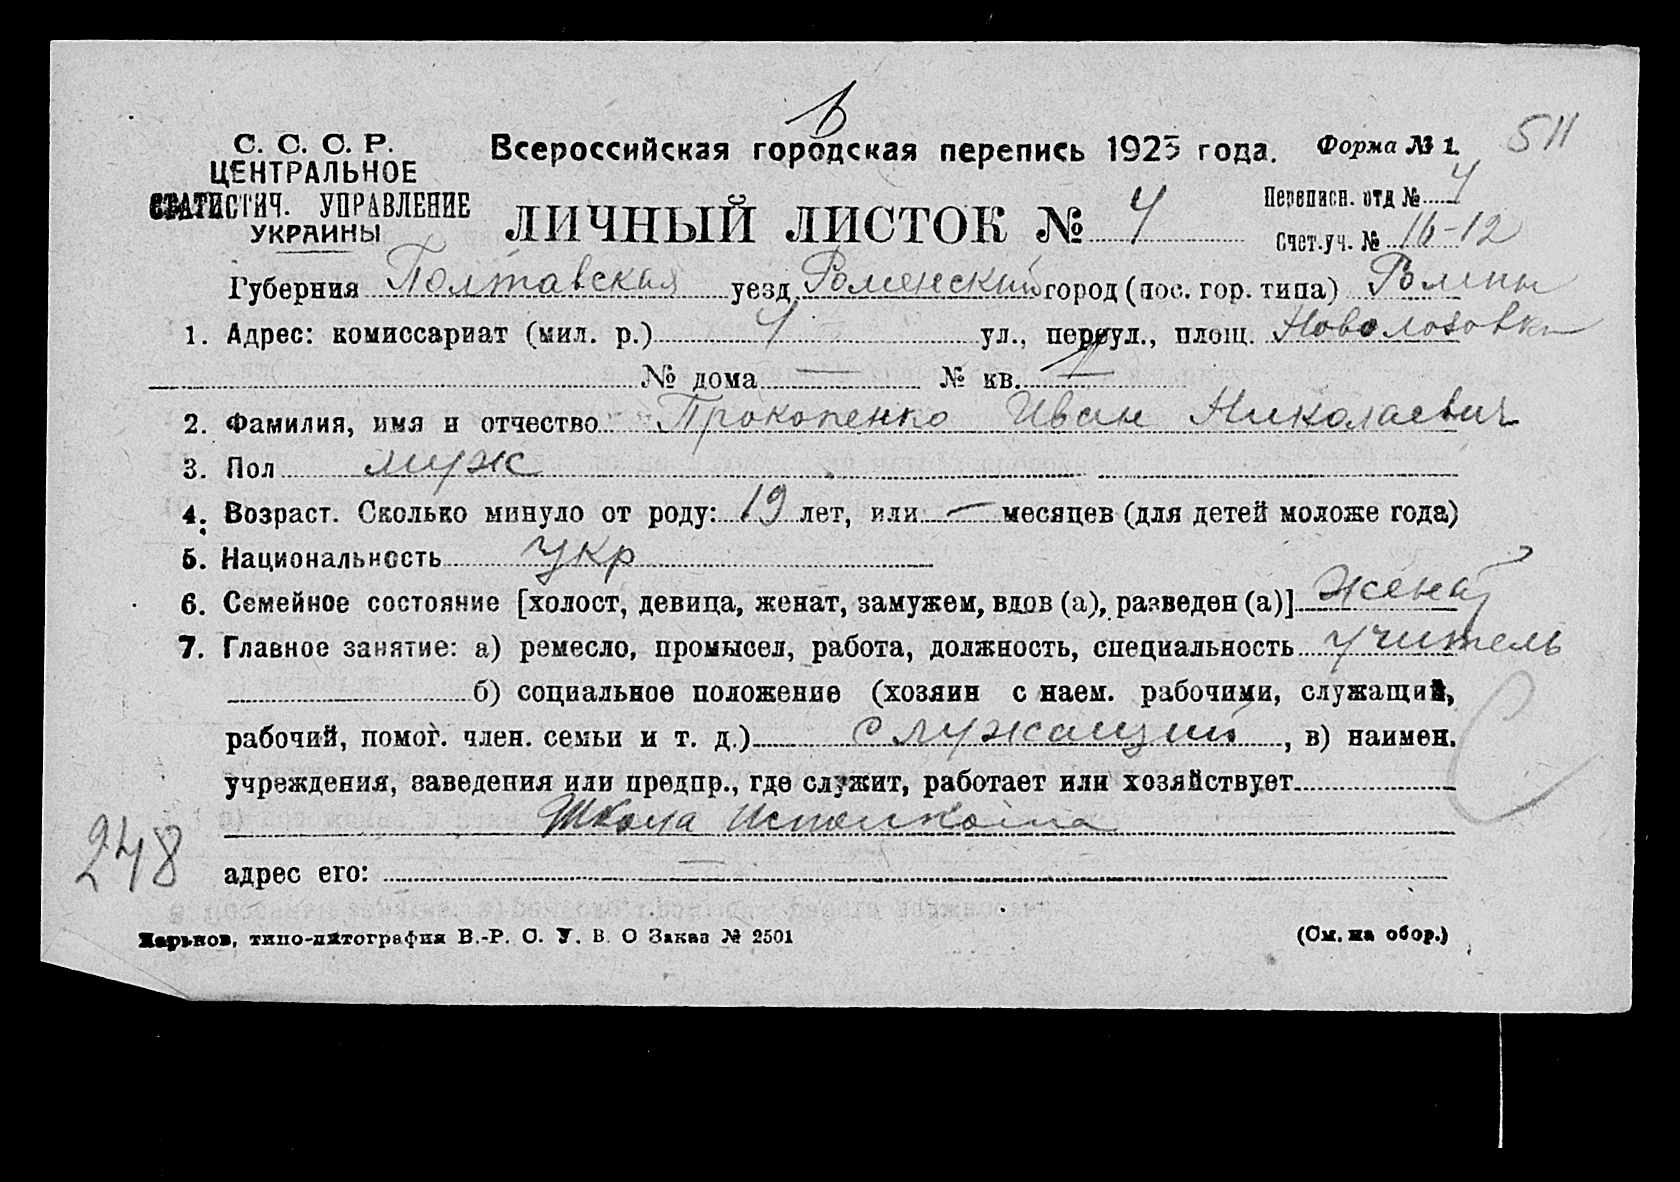 В
С. С. С. Р.
ЦЕНТРАЛЬНОЕ
СТАТИСТИЧ. УПРАВЛЕНИЕ
УКРАИНЫ
Всероссийская городская перепись 1923 года.
Форма № 1.
511
ЛИЧНЫЙ ЛИСТОК № 4
Переписн. отд № 4
Счет.уч. № 16-12
Губерния Полтавская уезд Роменский город (пос. гор. типа) Ромны
1. Адрес: комиссариат (мил. р.) 4 ул., переул., площ. Новолозовка
№ дома — № кв.
2. Фамилия, имя и отчество Прокопенко Иван Николаевич
3. Пол муж
4. Возраст. Сколько минуло от роду: 19 лет, или — месяцев (для детей моложе года)
5. Национальность укр
6. Семейное состояние [холост, девица, женат, замужем, вдов (а), разведен (а)] женат
7. Главное занятие: а) ремесло, промысел, работа, должность, специальность учитель
б) социальное положение (хозяин с наем. рабочими, служащий,
рабочий, помог. член. семьи и т. д.) служащий, в) наимен.
учреждения, заведения или предпр., где служит, работает или хозяйствует
Школа Исполкома
248
адрес его: —
Харьков, типо-литография В.-Р. С. У. В. О Заказ № 2501
(См. на обор.)